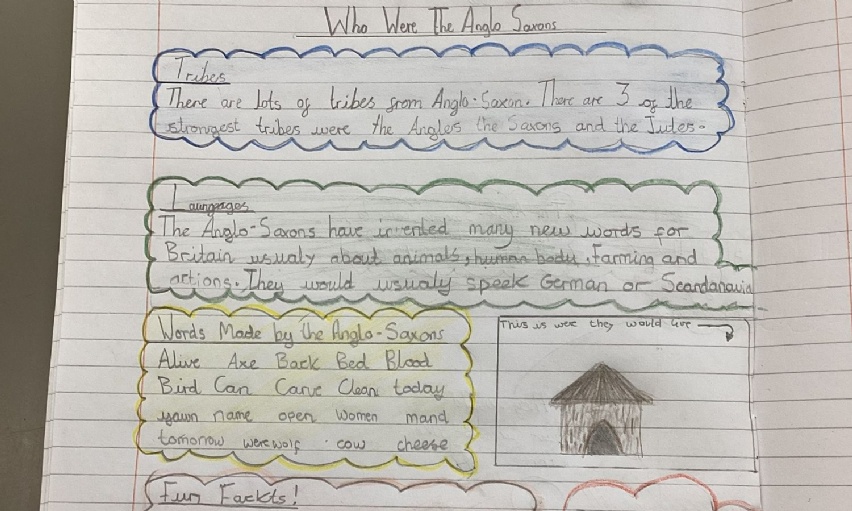 Who Were The Anglo Saxons
Tribes
There are lots of tribes from Anglo-Saxon. There are 3 of the
strongest tribes were the Angles the Saxons and the Judes.
Laungages
The Anglo-Saxons have invented many new words for
Britain usualy about animals, human body, Farming and
actions. They would usualy speek German or Scandanavia
Words Made by the Anglo-Saxons
Alive Axe Back Bed Blood
Bird Can Carve Clean today
yawn name open women mand
tomorrow werewolf cow cheese
This is were they would live
Fun Fackts!